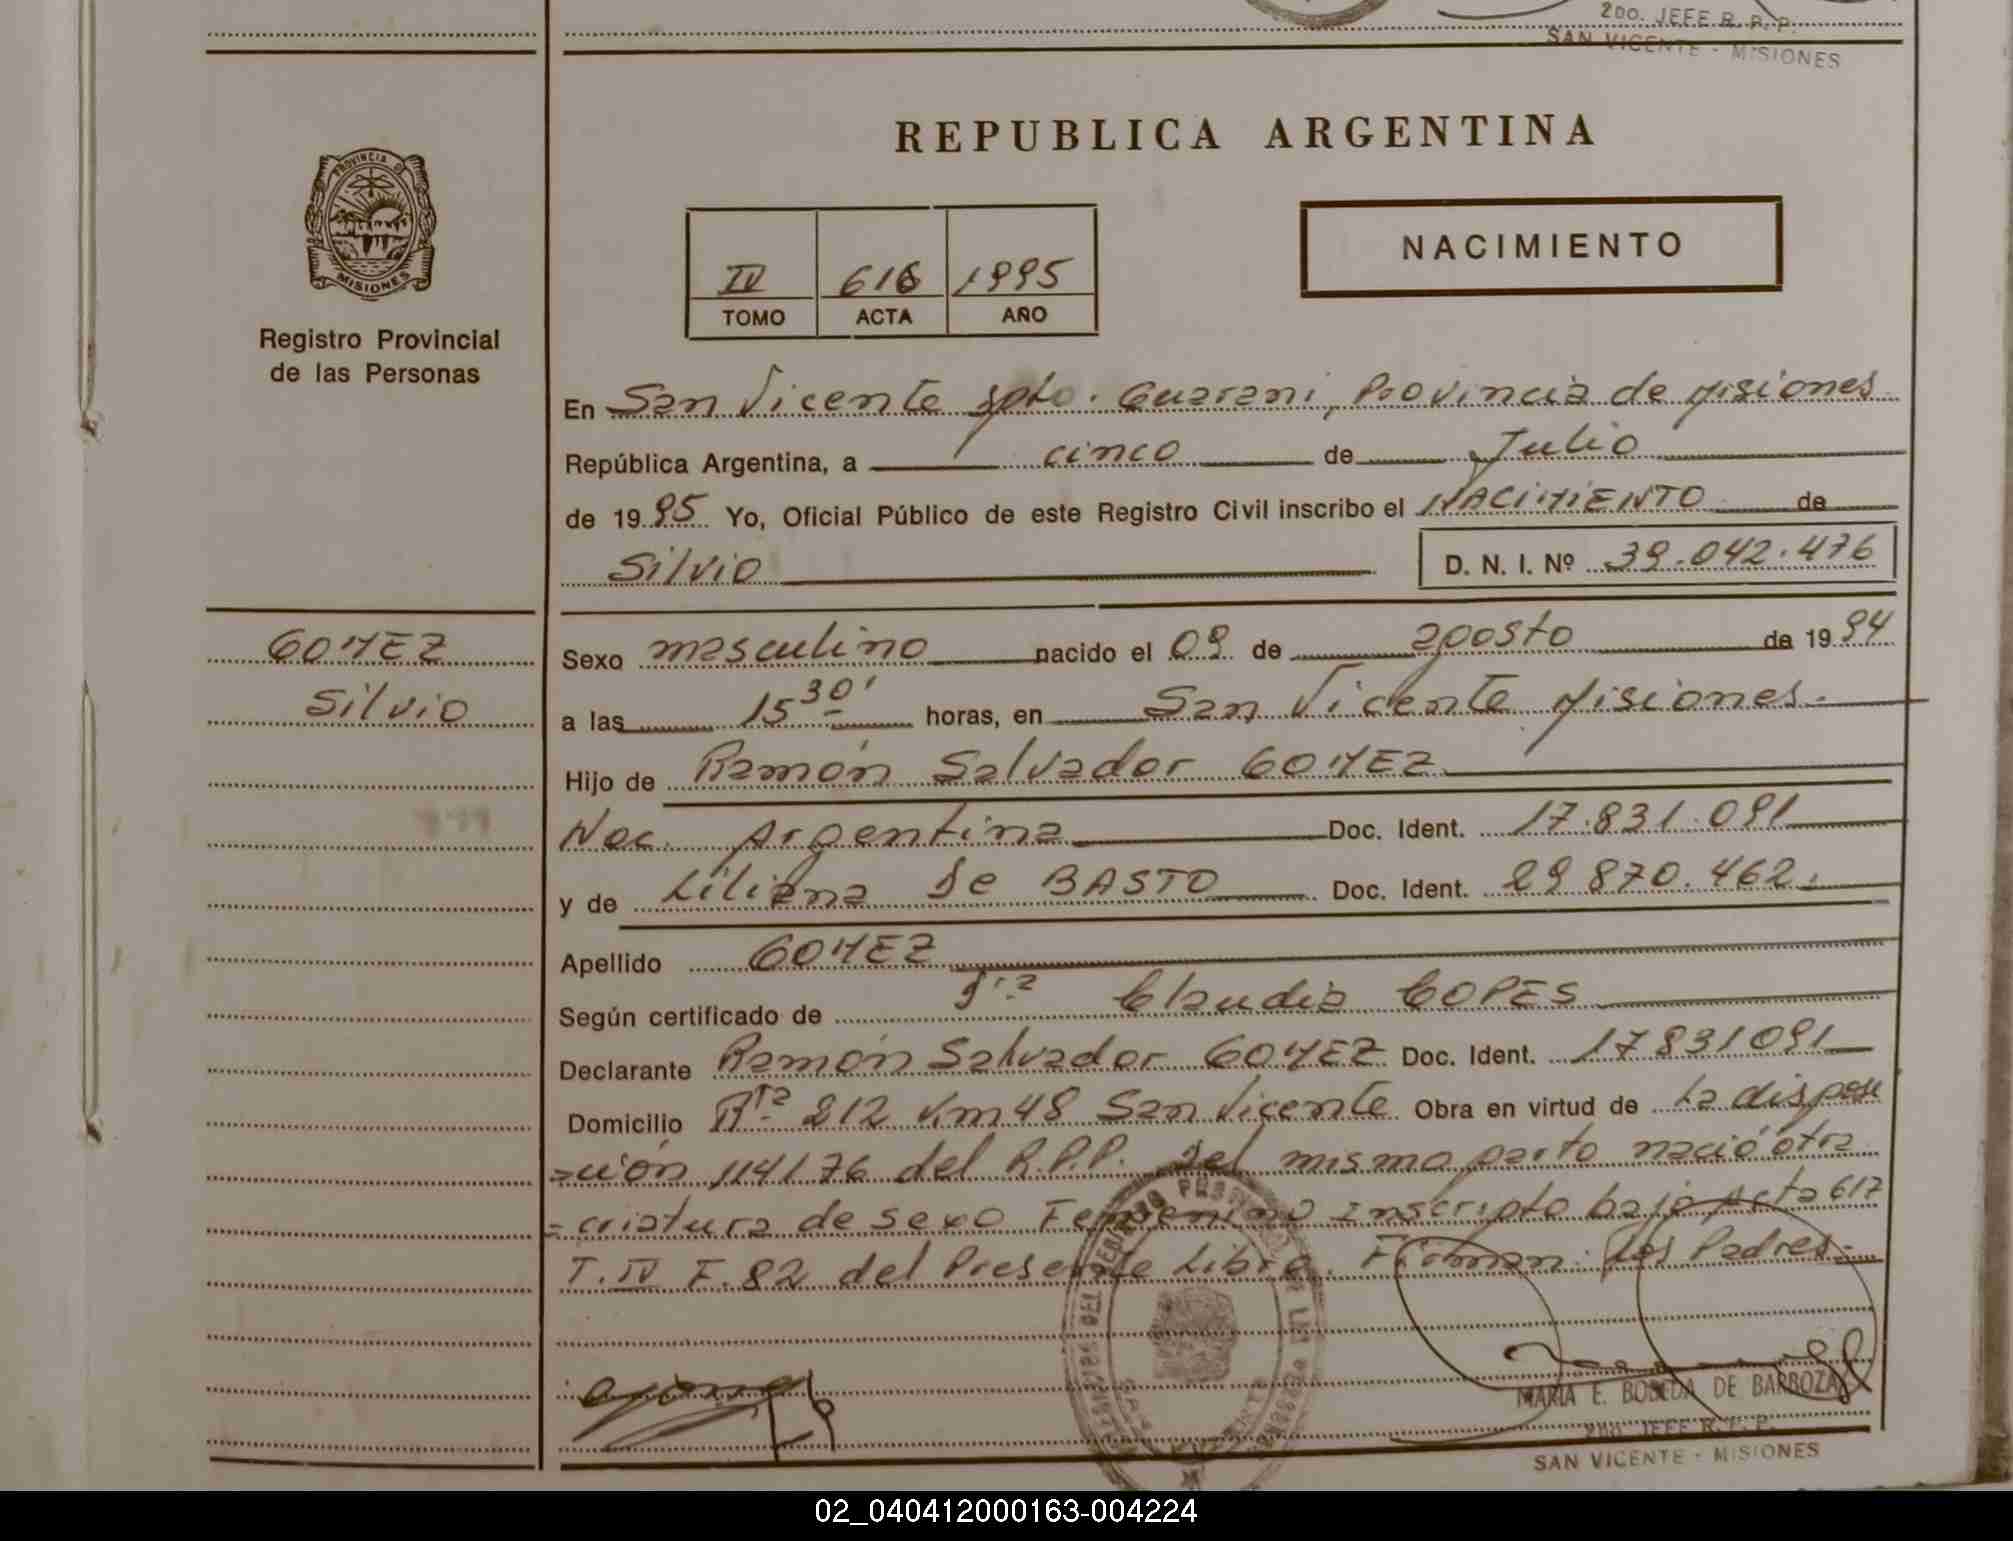 2DO. JEFE R. P. P.
SAN VICENTE - MISIONES
REPUBLICA ARGENTINA
PROVINCIA DE
MISIONES
Registro Provincial
de las Personas
IV 616 1995
TOMO ACTA AÑO
NACIMIENTO
En San Vicente Dpto. Guarani, Provincia de Misiones
República Argentina, a cinco de Julio
de 1995 Yo, Oficial Público de este Registro Civil inscribo el NACIMIENTO de
Silvio D. N. I. Nº 39.042.476
GOMEZ
Silvio
Sexo masculino nacido el 09 de agosto de 1994
a las 15 30' horas, en San Vicente Misiones.-
Hijo de Ramón Salvador GOMEZ
Nac. Argentina Doc. Ident. 17.831.091
y de Liliana De BASTO Doc. Ident. 29.870.462.
Apellido GOMEZ
Según certificado de Claudia COPES
Declarante Ramón Salvador GOMEZ Doc. Ident. 17831091
Domicilio Rta 212 Km 48 San Vicente Obra en virtud de La disposi
=ción 1141/76 del R.P.P. Del mismo parto nació otra
=criatura de sexo Femenino Inscripto bajo Acta 617
T. IV F. 82 del Presente Libro. Firman: Los Padres.-
MARIA E. BOBEDA DE BARBOZA
2DO. JEFE R. P. P.
SAN VICENTE - MISIONES
02_040412000163-004224